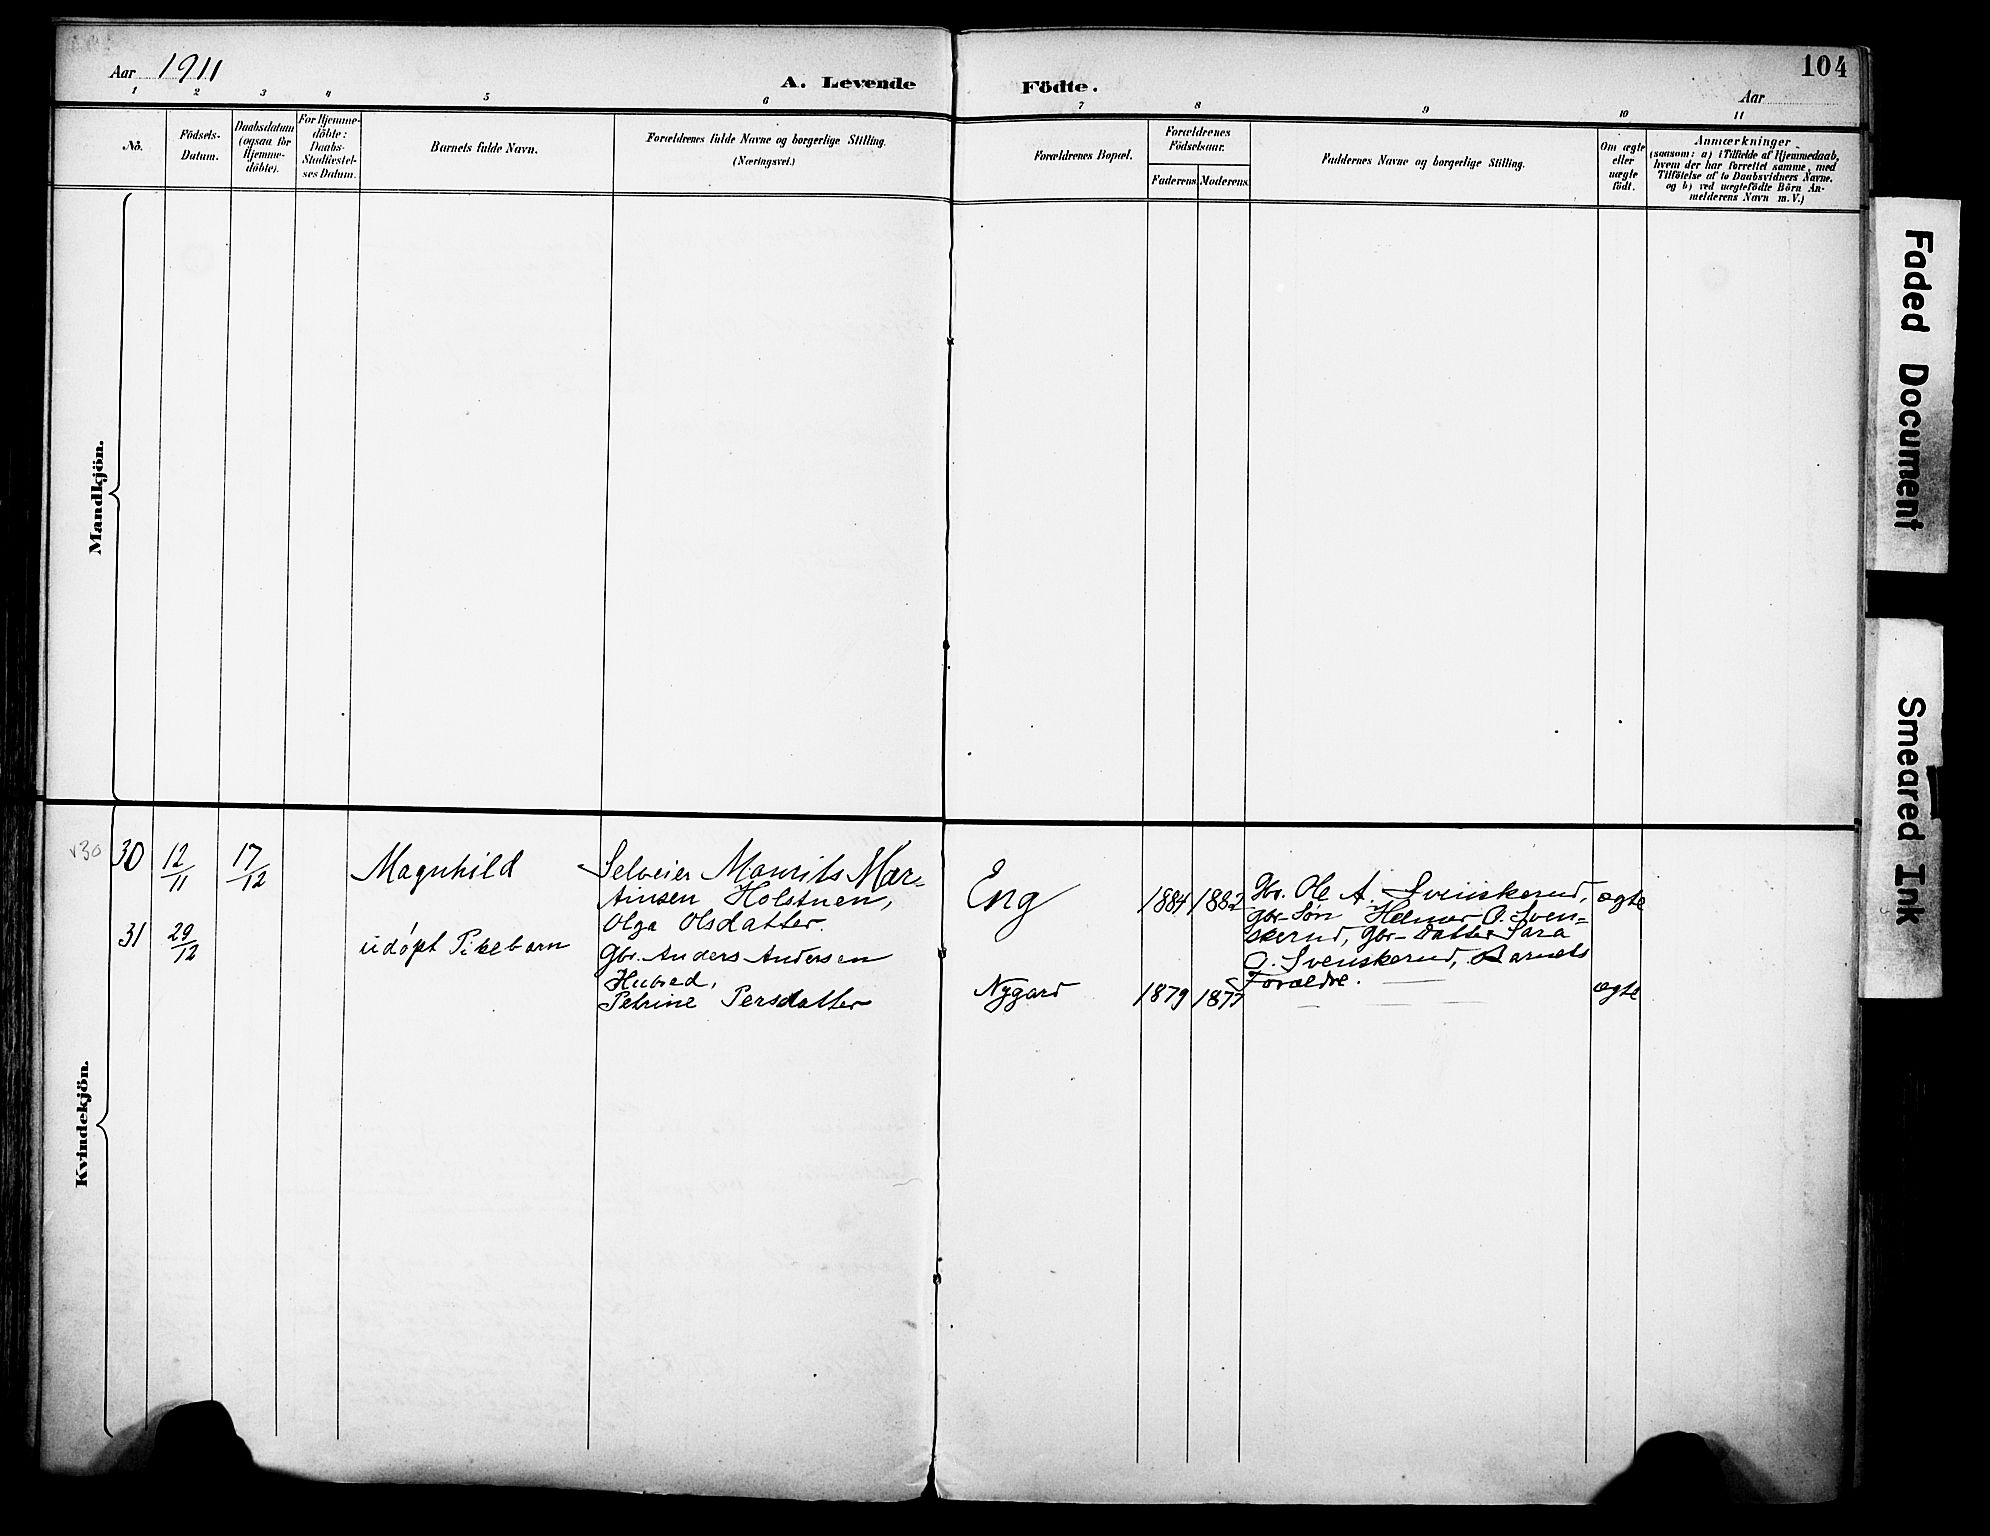 Aar 1911
A. Levende Födte.
104
Aar
1 2 3 4 5 6 7 8 9 10 11
No.
Födsels-
Datum.
Daabsdatum
(ogsaa for
Hjemme-
döbte).
For Hjemme-
döbte:
Daabs-
Stadfæstel-
ses Datum.
Barnets fulde Navn.
Forældrenes fulde Navne og borgerlige Stilling.
(Næringsvei.)
Forældrenes Bopæl.
Forældrenes
Födselsaar.
Faderens
Moderens
Faddernes Navne og borgerlige Stilling.
Om ægte
eller
uægte
født.
Anmærkninger
(saasom: a) i Tilfælde af Hjemmedaab,
hvem der har forrettet samme, med
Tilföielse af to Daabsvidners Navne.
og b) ved uægtefödte Börn An-
melderens Navn m. V.)
Mandkjön.
Kvindekjön.
v30 30 12/11 17/12
Magnhild
Selveier Maurits Mar-
tinsen Holstuen,
Olga Olsdatter.
Eng
1884 1882
Gbr. Ole A. Svenskerud,
gbr-Søn Helmer O. Sven-
skerud, Gbr-datter Sara
O. Svenskerud, Barnets
Forældre.
ægte
31 29/12
udöpt Pikebarn
Gbr. Anders Andersen
Hubred,
Petrine Persdatter
Nygard
1879 1877
ægte
Faded Document
Smeared Ink